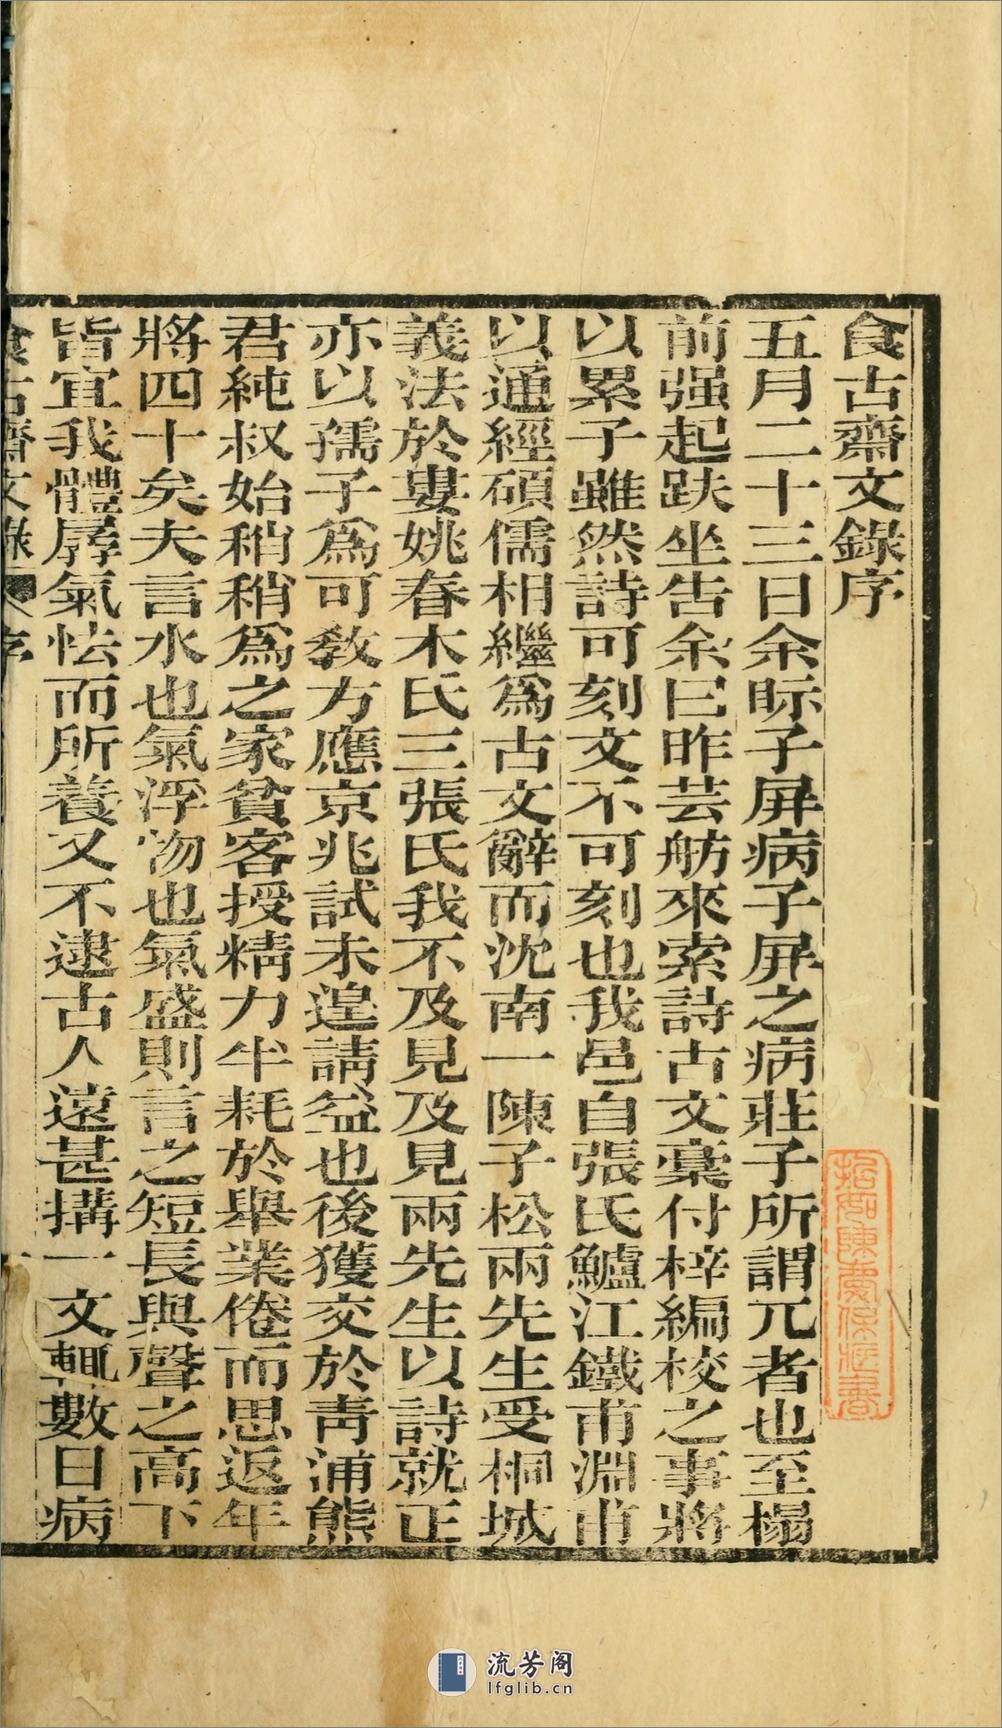 食古齋文錄序
五月二十三日余眎子屏病子屏之病莊子所謂兀者也至榻
前强起趺坐告余曰昨芸舫來索詩古文藁付梓編校之事將
以累子雖然詩可刻文不可刻也我邑自張氏鱸江鐵甫淵甫
以通經碩儒相繼爲古文辭而沈南一陳子松兩先生受桐城
義法於婁姚春木氏三張氏我不及見及見兩先生以詩就正
亦以孺子爲可敎方應京兆試未遑請益也後獲交於靑浦熊
君純叔始稍稍爲之家貧客授精力半耗於舉業倦而思返年
將四十矣夫言水也氣浮物也氣盛則言之短長與聲之高下
皆宜我體孱氣怯而所養又不逮古人遠甚搆一文輒數日病
食古齋文錄 序
一
流芳阁
lfglib.cn